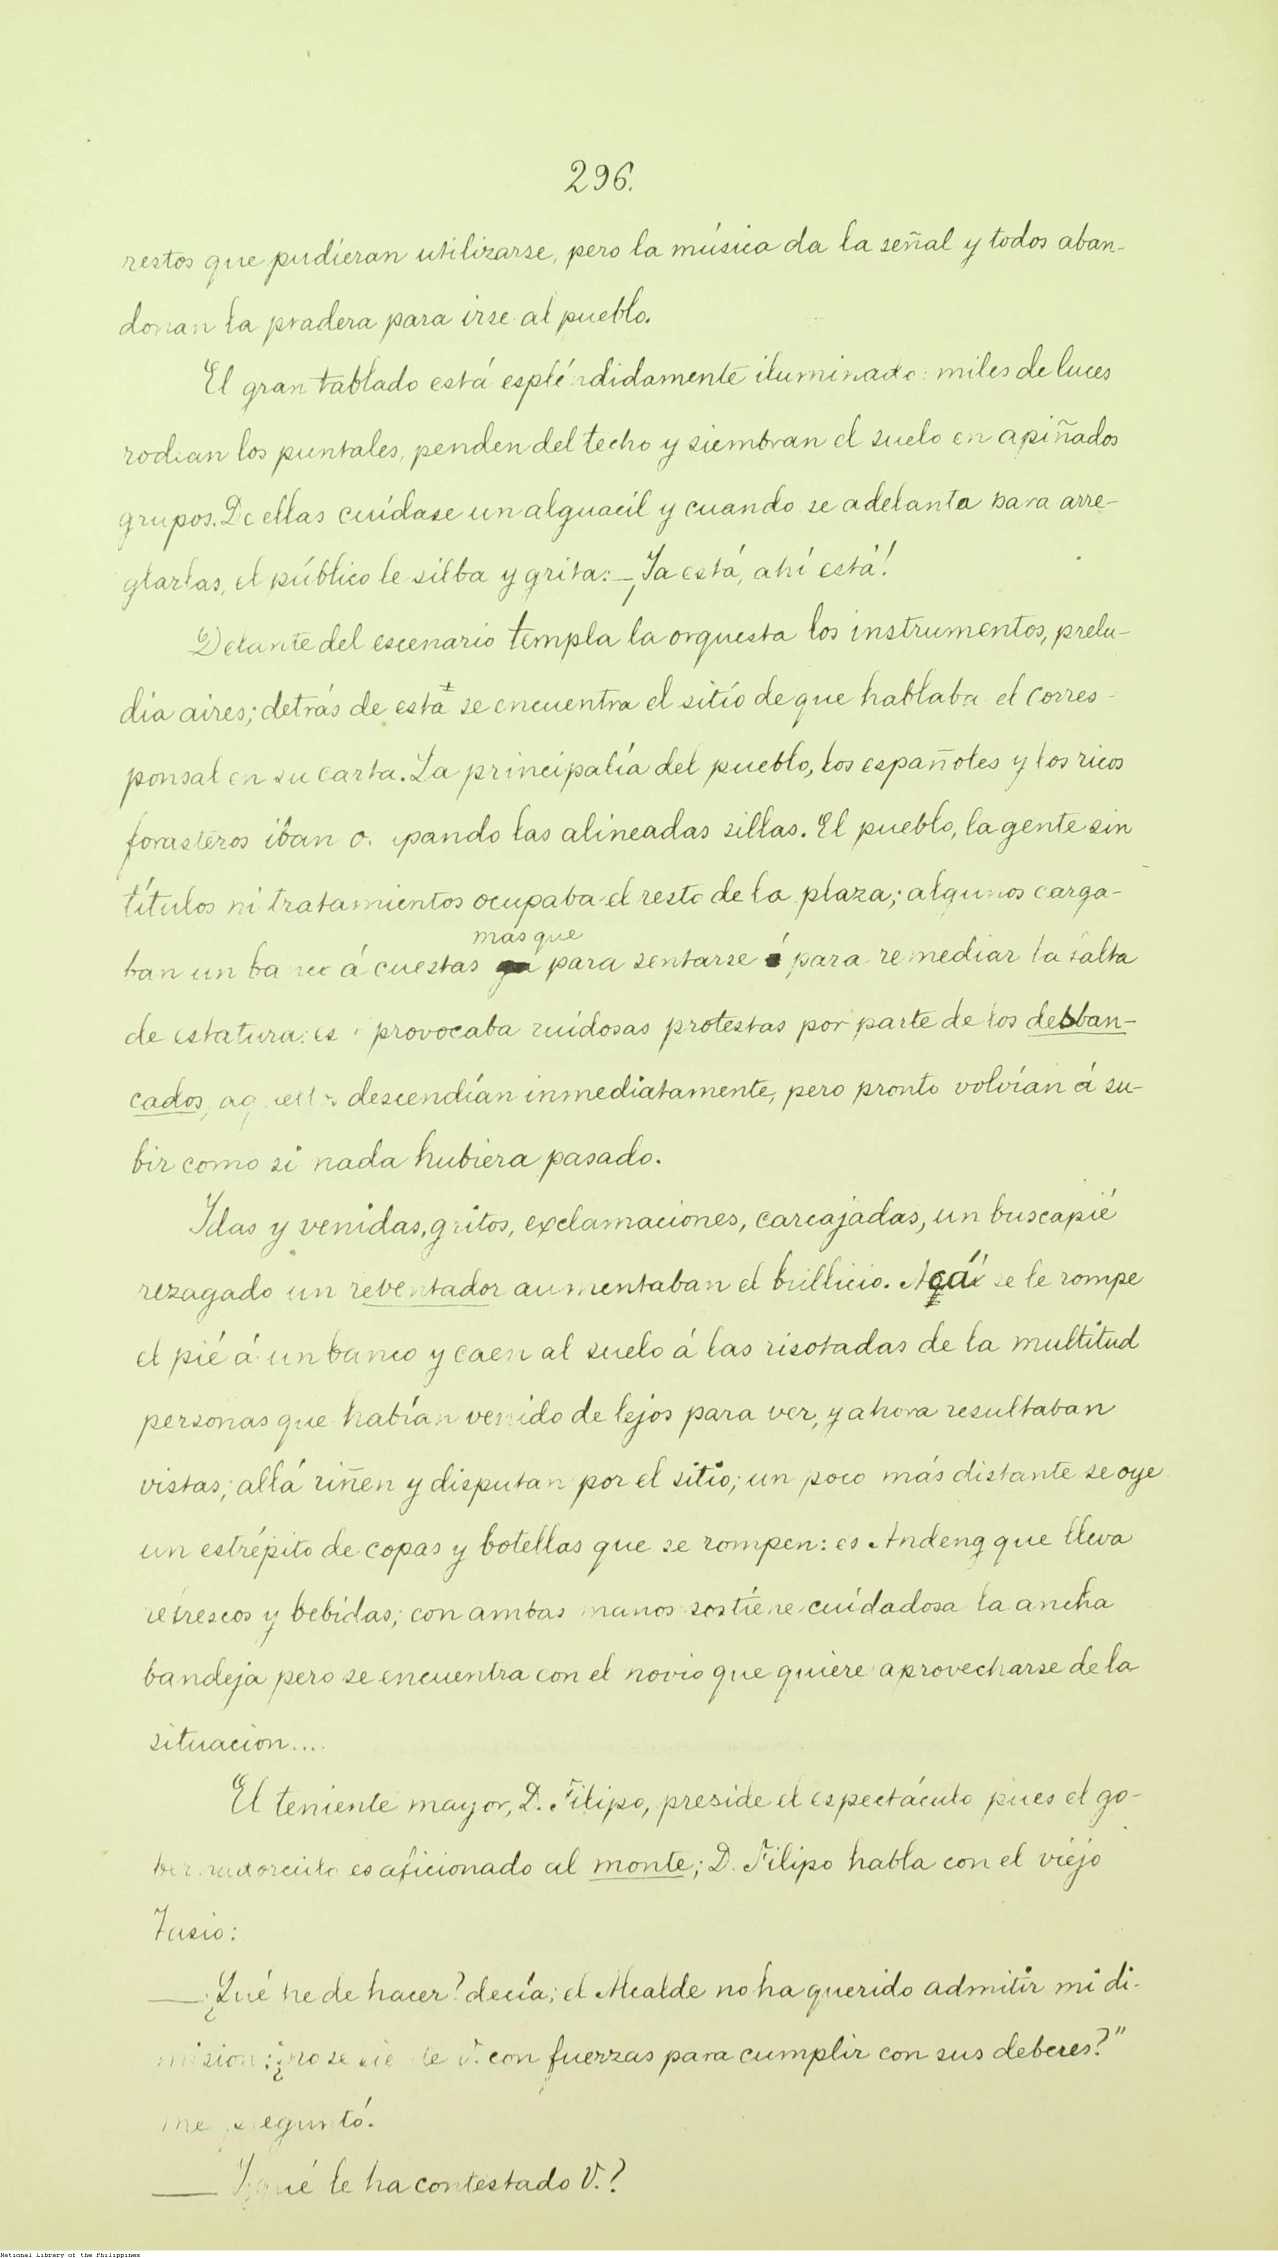 296.
restos que pudieran utilizarse, pero la música da la señal y todos aban-
donan la pradera para irse al pueblo.
El gran tablado está espléndidamente iluminado: miles de luces
rodean los puntales, penden del techo y siembran el suelo en apiñados
grupos. De ellas cuídase un alguacil y cuando se adelanta para arre-
glarlas, el público le silba y grita: — ¡Ya está, ahí está!
Delante del escenario templa la orquesta los instrumentos, prelu-
dia aires; detrás de esta se encuentra el sitio de que hablaba el corres-
ponsal en su carta. La principalía del pueblo, los españoles y los ricos
forasteros iban o. upando las alineadas sillas. El pueblo, la gente sin
títulos ni tratamientos ocupaba el resto de la plaza; algunos carga-
mas que
ban un banco á cuestas para sentarse para remediar la falta
de estatura: es provocaba ruidosas protestas por parte de los desban-
cados, descendían inmediatamente, pero pronto volvían á su-
bir como si nada hubiera pasado.
Idas y venidas, gritos, exclamaciones, carcajadas, un buscapié
rezagado un reventador aumentaban el bullicio. Acá se le rompe
el pié á un banco y caen al suelo á las risotadas de la multitud
personas que habían venido de lejos para ver, y ahora resultaban
vistas; allá riñen y disputan por el sitio; un poco más distante se oye
un estrépito de copas y botellas que se rompen: es Andeng que lleva
refrescos y bebidas; con ambas manos sostiene cuidadosa la ancha
bandeja pero se encuentra con el novio que quiere aprovecharse de la
situacion....
El teniente mayor, D. Filipo, preside el espectáculo pues el go-
bernadorcillo es aficionado al monte; D. Filipo habla con el viejo
Tasio:
— ¿Qué he de hacer? decía; el Alcalde no ha querido admitir mi di-
mision; ¿no se siente V. con fuerzas para cumplir con sus deberes?"
me preguntó.
— Y qué le ha contestado V.?
National Library of the Philippines